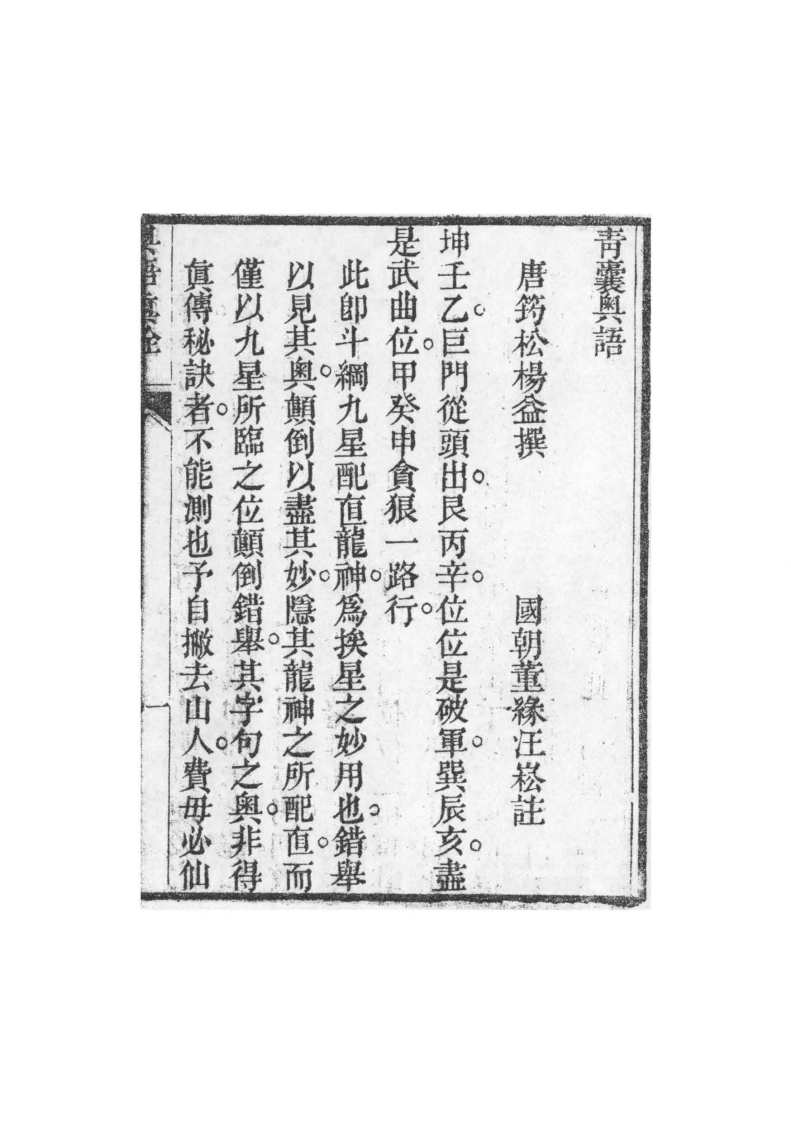 青囊奧語
唐筠松楊益撰　國朝董緣汪崧註
坤壬乙。巨門從頭出。艮丙辛。位位是破軍。巽辰亥。盡
是武曲位。甲癸申貪狼一路行。
此卽斗綱九星配直龍神。爲挨星之妙用也。錯舉
以見其奧。顛倒以盡其妙。隱其龍神之所配直。而
僅以九星所臨之位顛倒錯舉。其字句之奧。非得
眞傳秘訣者。不能測也予自撇去山人。費毋必仙
奧語眞詮